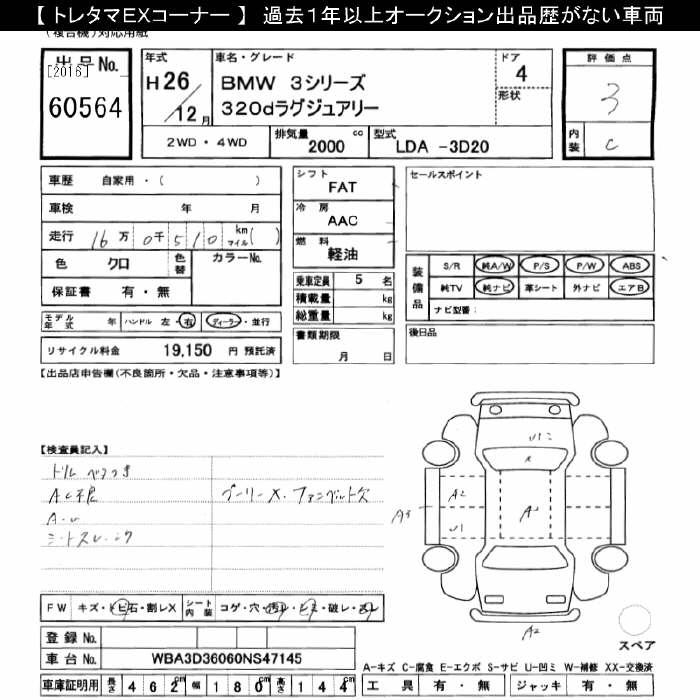 【 トレタマＥＸコーナー 】 過去１年以上オークション出品歴がない車両
(複合機)対応用紙
出品No.
[2016]
60564
年式
H 26 / 12 月
車名・グレード
BMW 3シリーズ
320dラグジュアリー
ドア
4
形状
2WD ・ 4WD
排気量 2000 cc
型式 LDA -3D20
評価点
3
内装
C
車歴 自家用・( )
車検 年 月
走行 16 万 0 千 5 1 0 km マイル ( )
色 クロ
色替
カラーNo.
保証書 有・無
モデル年式 年 ハンドル 左・右 ディーラー・並行
リサイクル料金 19,150 円 預託済
シフト
FAT
冷房
AAC
燃料
軽油
乗車定員 5 名
積載量 kg
総重量 kg
書類期限
月 日
セールスポイント
装備品
S/R 純A/W P/S P/W ABS
純TV 純ナビ 革シート 外ナビ エアB
ナビ型番:
後日品
【出品店申告欄(不良箇所・欠品・注意事項等)】
【検査員記入】
トリム ベタつき
AC不良
シートスレ
プーリーX. ファンベルト欠
U1
A2
A3
U1
A2
FW キズ・トビ石・割レX
シート内装 コゲ・穴・汚レ・シミ・破レ・スレ
登録No.
車台No. WBA3D36060NS47145
車庫証明用 長さ 462cm 幅 180cm 高さ 144cm
スペア
A-キズ C-腐食 E-エクボ S-サビ U-凹ミ W-補修 XX-交換済
工具 有・無 ジャッキ 有・無